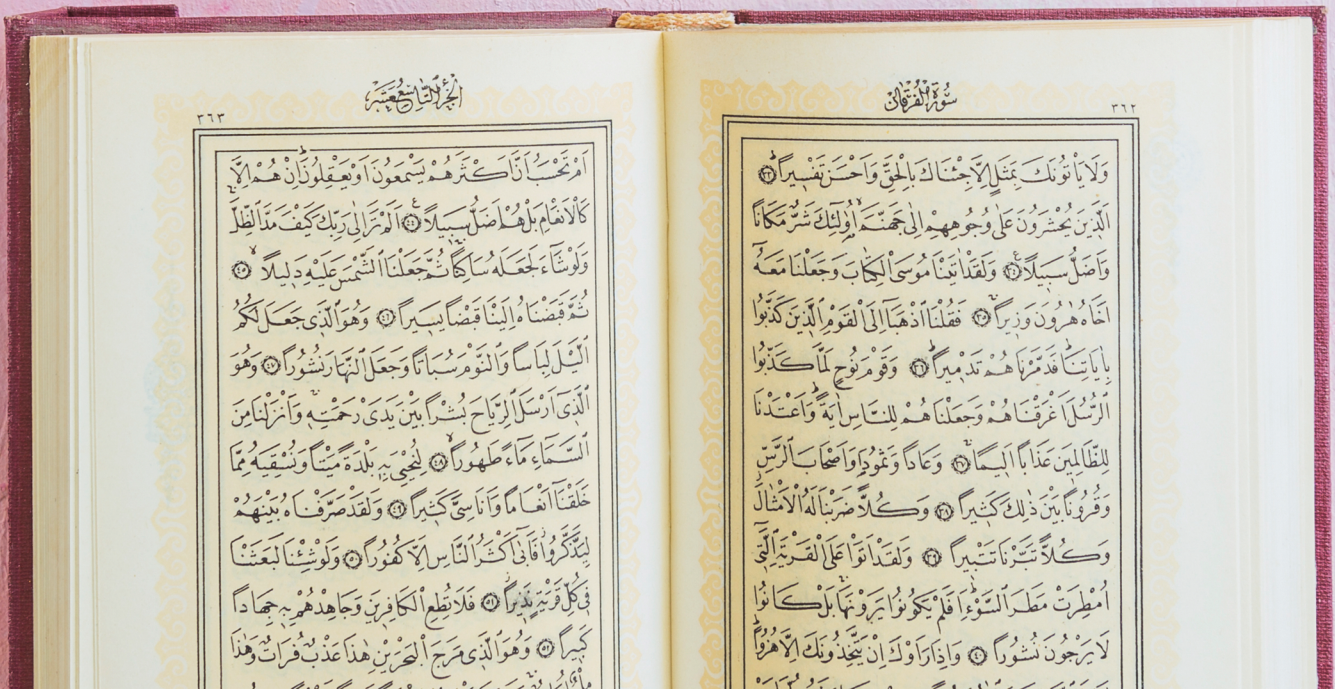 سُورَةُ الْفُرْقَانِ
٣٦٢
وَلَا يَاْتُونَكَ بِمَثَلٍ اِلَّا جِئْنَاكَ بِالْحَقِّ وَاَحْسَنَ تَفْسِيراًۜ ﴿٣٣﴾
اَلَّذِينَ يُحْشَرُونَ عَلٰى وُجُوهِهِمْ اِلٰى جَهَنَّمَۙ اُو۬لٰٓئِكَ شَرٌّ مَكَاناً
وَاَضَلُّ سَبِيلاً۟ ﴿٣٤﴾ وَلَقَدْ اٰتَيْنَا مُوسَى الْكِتَابَ وَجَعَلْنَا مَعَهُٓ
اَخَاهُ هٰرُونَ وَزِيراًۚ ﴿٣٥﴾ فَقُلْنَا اذْهَبَٓا اِلَى الْقَوْمِ الَّذِينَ كَذَّبُوا
بِاٰيَاتِنَاۜ فَدَمَّرْنَاهُمْ تَدْمِيراًۜ ﴿٣٦﴾ وَقَوْمَ نُوحٍ لَمَّا كَذَّبُوا
الرُّسُلَ اَغْرَقْنَاهُمْ وَجَعَلْنَاهُمْ لِلنَّاسِ اٰيَةًۜ وَاَعْتَدْنَا
لِلظَّالِمِينَ عَذَاباً اَلِيماًۚ ﴿٣٧﴾ وَعَاداً وَثَمُودَا۬ وَاَصْحَابَ الرَّسِّ
وَقُرُوناً بَيْنَ ذٰلِكَ كَثِيراً ﴿٣٨﴾ وَكُلاًّ ضَرَبْنَا لَهُ الْاَمْثَالَۘ
وَكُلاًّ تَبَّرْنَا تَتْبِيراً ﴿٣٩﴾ وَلَقَدْ اَتَوْا عَلَى الْقَرْيَةِ الَّتِٓي
اُمْطِرَتْ مَطَرَ السَّوْءِۜ اَفَلَمْ يَكُونُوا يَرَوْنَهَاۚ بَلْ كَانُوا
لَا يَرْجُونَ نُشُوراً ﴿٤٠﴾ وَاِذَا رَاَوْكَ اِنْ يَتَّخِذُونَكَ اِلَّا هُزُواًۜ
اَلْجُزْءُ التَّاسِعُ عَشَرَ
٣٦٣
اَمْ تَحْسَبُ اَنَّ اَكْثَرَهُمْ يَسْمَعُونَ اَوْ يَعْقِلُونَۜ اِنْ هُمْ اِلَّا
كَالْاَنْعَامِ بَلْ هُمْ اَضَلُّ سَبِيلاً۟ ﴿٤٤﴾ اَلَمْ تَرَ اِلٰى رَبِّكَ كَيْفَ مَدَّ الظِّلَّۚ
وَلَوْ شَٓاءَ لَجَعَلَهُ سَاكِناًۚ ثُمَّ جَعَلْنَا الشَّمْسَ عَلَيْهِ دَلِيلاًۙ ﴿٤٥﴾
ثُمَّ قَبَضْنَاهُ اِلَيْنَا قَبْضاً يَسِيراً ﴿٤٦﴾ وَهُوَ الَّذِي جَعَلَ لَكُمُ
الَّيْلَ لِبَاساً وَالنَّوْمَ سُبَاتاً وَجَعَلَ النَّهَارَ نُشُوراً ﴿٤٧﴾ وَهُوَ
الَّذِٓي اَرْسَلَ الرِّيَاحَ بُشْراً بَيْنَ يَدَيْ رَحْمَتِهِۚ وَاَنْزَلْنَا مِنَ
السَّمَٓاءِ مَٓاءً طَهُوراًۙ ﴿٤٨﴾ لِنُحْيِيَ بِهِ بَلْدَةً مَيْتاً وَنُسْقِيَهُ مِمَّا
خَلَقْنَٓا اَنْعَاماً وَاَنَاسِيَّ كَثِيراً ﴿٤٩﴾ وَلَقَدْ صَرَّفْنَاهُ بَيْنَهُمْ
لِيَذَّكَّرُواۘ فَاَبٰٓى اَكْثَرُ النَّاسِ اِلَّا كُفُوراً ﴿٥٠﴾ وَلَوْ شِئْنَا لَبَعَثْنَا
فِي كُلِّ قَرْيَةٍ نَذِيراًۘ ﴿٥١﴾ فَلَا تُطِعِ الْكَافِرِينَ وَجَاهِدْهُمْ بِهِ جِهَاداً
كَبِيراً ﴿٥٢﴾ وَهُوَ الَّذِي مَرَجَ الْبَحْرَيْنِ هٰذَا عَذْبٌ فُرَاتٌ وَهٰذَا